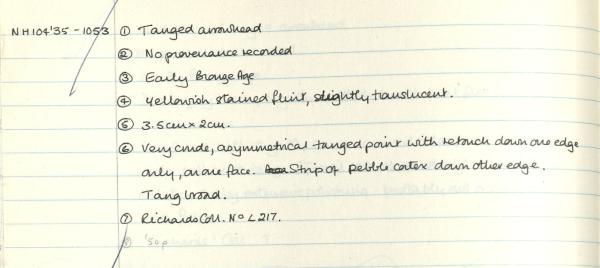 NH104'35 - 1053 ① Tanged arrowhead
② No provenance recorded
③ Early Bronze Age
④ Yellowish stained flint, slightly translucent.
⑤ 3.5cm x 2cm.
⑥ Very crude, asymmetrical tanged point with retouch down one edge
only, on one face. Strip of pebble cortex down other edge.
Tang broad.
⑦ Richards Coll. No L217.
⑧ '50p